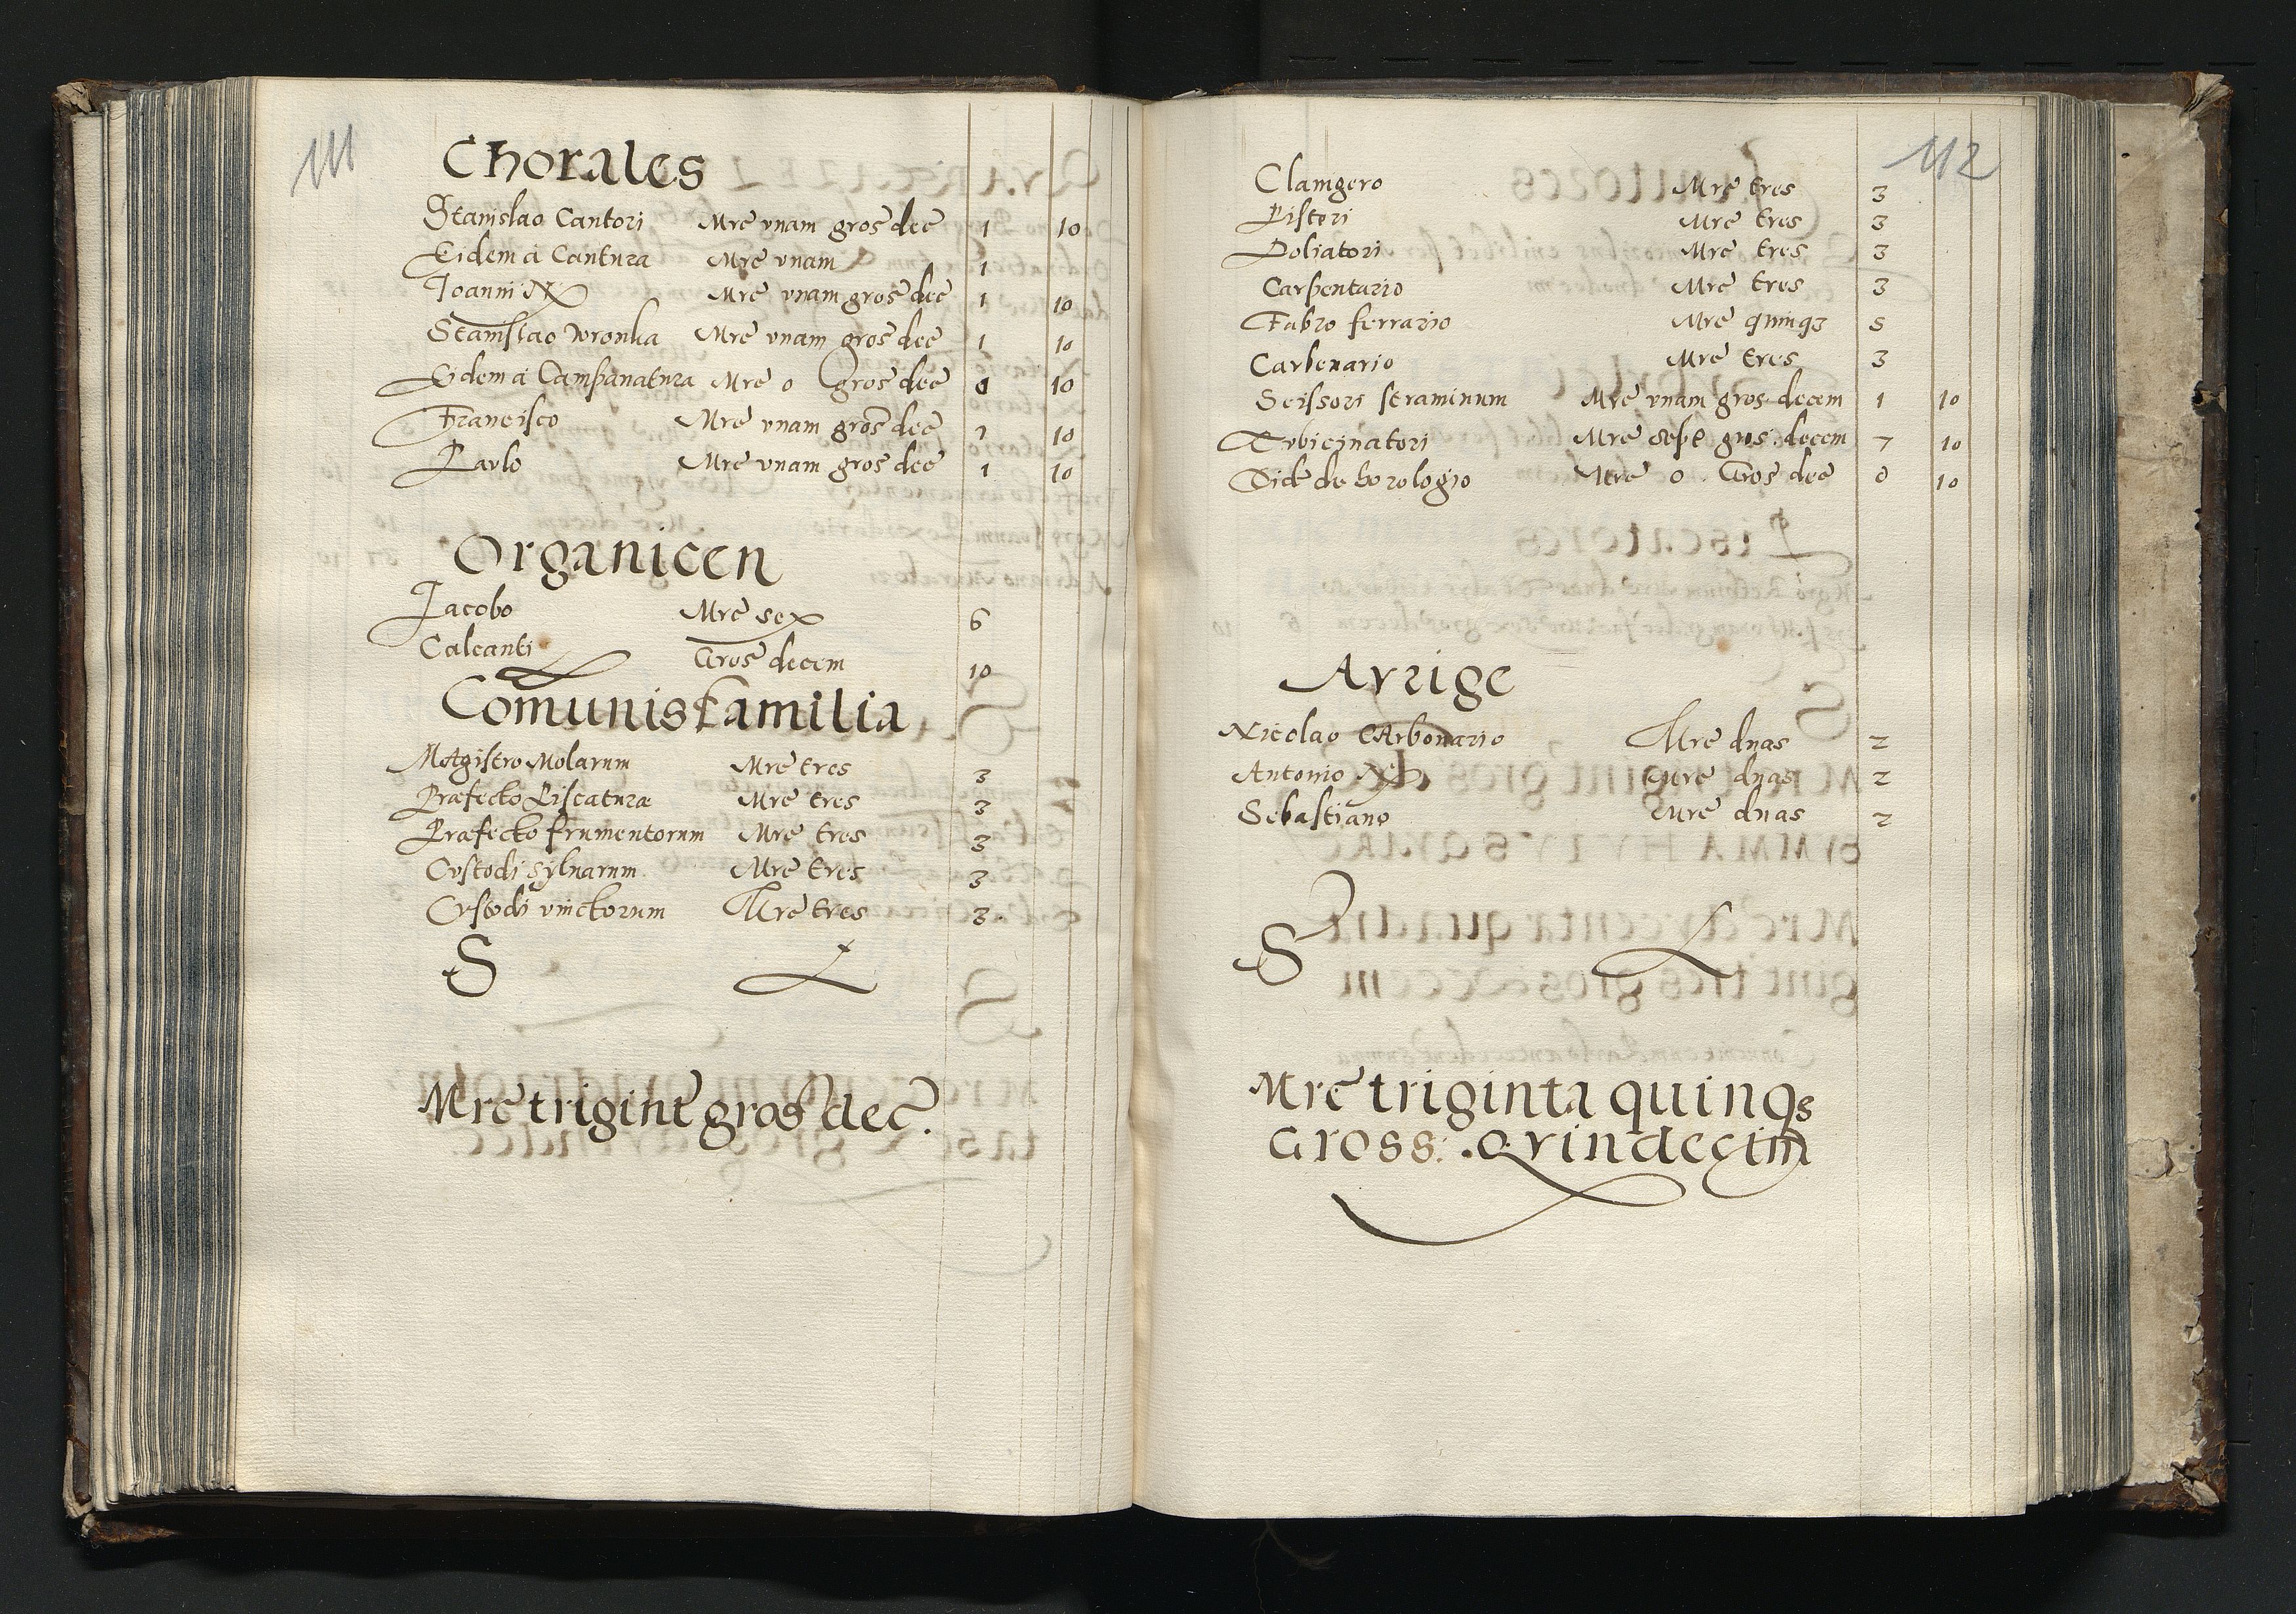 111
Chorales
Stanislao Cantori Mrc̃ vnam gros̃ dec̃ 1 10
Eidem à Cantura Mrc̃ vnam 1
Joanni N Mrc̃ vnam gros̃ dec̃ 1 10
Stanislao Wronka Mrc̃ vnam gros̃ dec̃ 1 10
Eidem à Campanatura Mrc̃ 0 gros̃ dec̃ 0 10
Francisco Mrc̃ vnam gros̃ dec̃ 1 10
Pavlo Mrc̃ vnam gros̃ dec̃ 1 10
Organicen
Jacobo Mrc̃ sex 6
Calcanti Gros̃ decem 10
Comunis Familia
Magistro Molarum Mrc̃ tres 3
Præfecto Piscaturæ Mrc̃ tres 3
Præfecto frumentorum Mrc̃ tres 3
Cvstodi sylvarum Mrc̃ tres 3
Cvstodi vinctorum Mrc̃ tres 3.
S
Mrc̃ trigint̃ gros̃ dec̃.
112
Clavigero Mrc̃ tres 3
Pistori Mrc̃ tres 3
Doliatori Mrc̃ tres 3
Carpentario Mrc̃ tres 3
Fabro ferrario Mrc̃ quinq3 5
Carbenario Mrc̃ tres 3
Scissori straminum Mrc̃ vnam gros. decem 1 10
Tvbicinatori Mrc̃ sept̃ gros. decem 7 10
Eid̃ de horologio Mrc̃ 0 Gros̃ dec̃ 0 10
Avrige
Nicolao CArbonario Mrc̃ duas 2
Antonio N Mrc̃ duas 2
Sebastiano Mrc̃ duas 2
S
Mrc̃ triginta quinqs
Gross: .Qvindecim